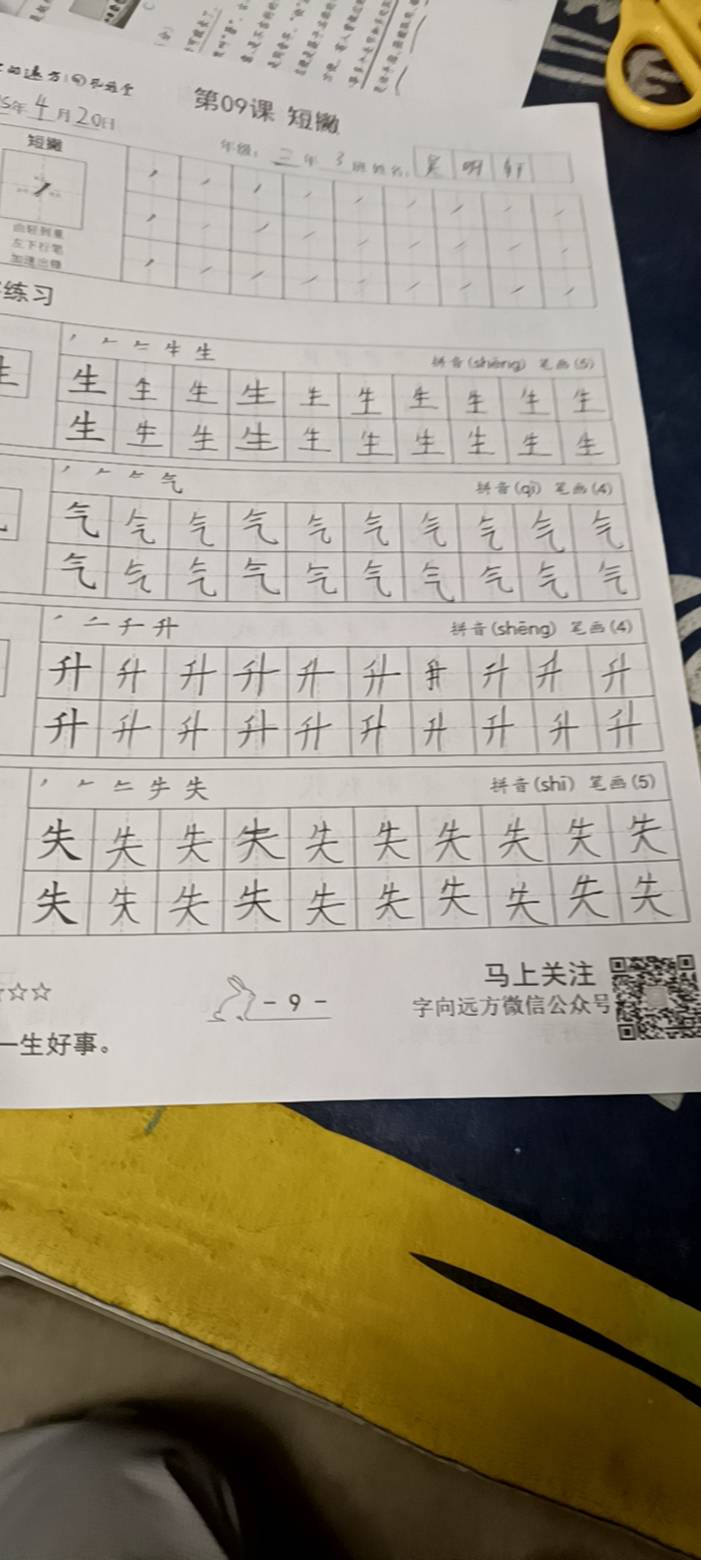 第09课 短撇
年4月20日
年级：三年3班 姓名：吴明轩
短撇
由轻到重
左下行笔
加速出锋
练习
生 拼音(shēng) 笔画(5)
生 生 生 生 生 生 生 生 生 生
生 生 生 生 生 生 生 生 生 生
气 拼音(qì) 笔画(4)
气 气 气 气 气 气 气 气 气 气
气 气 气 气 气 气 气 气 气 气
升 拼音(shēng) 笔画(4)
升 升 升 升 升 升 升 升 升 升
升 升 升 升 升 升 升 升 升 升
失 拼音(shī) 笔画(5)
失 失 失 失 失 失 失 失 失 失
失 失 失 失 失 失 失 失 失 失
☆☆
- 9 -
马上关注
字向远方微信公众号
一生好事。